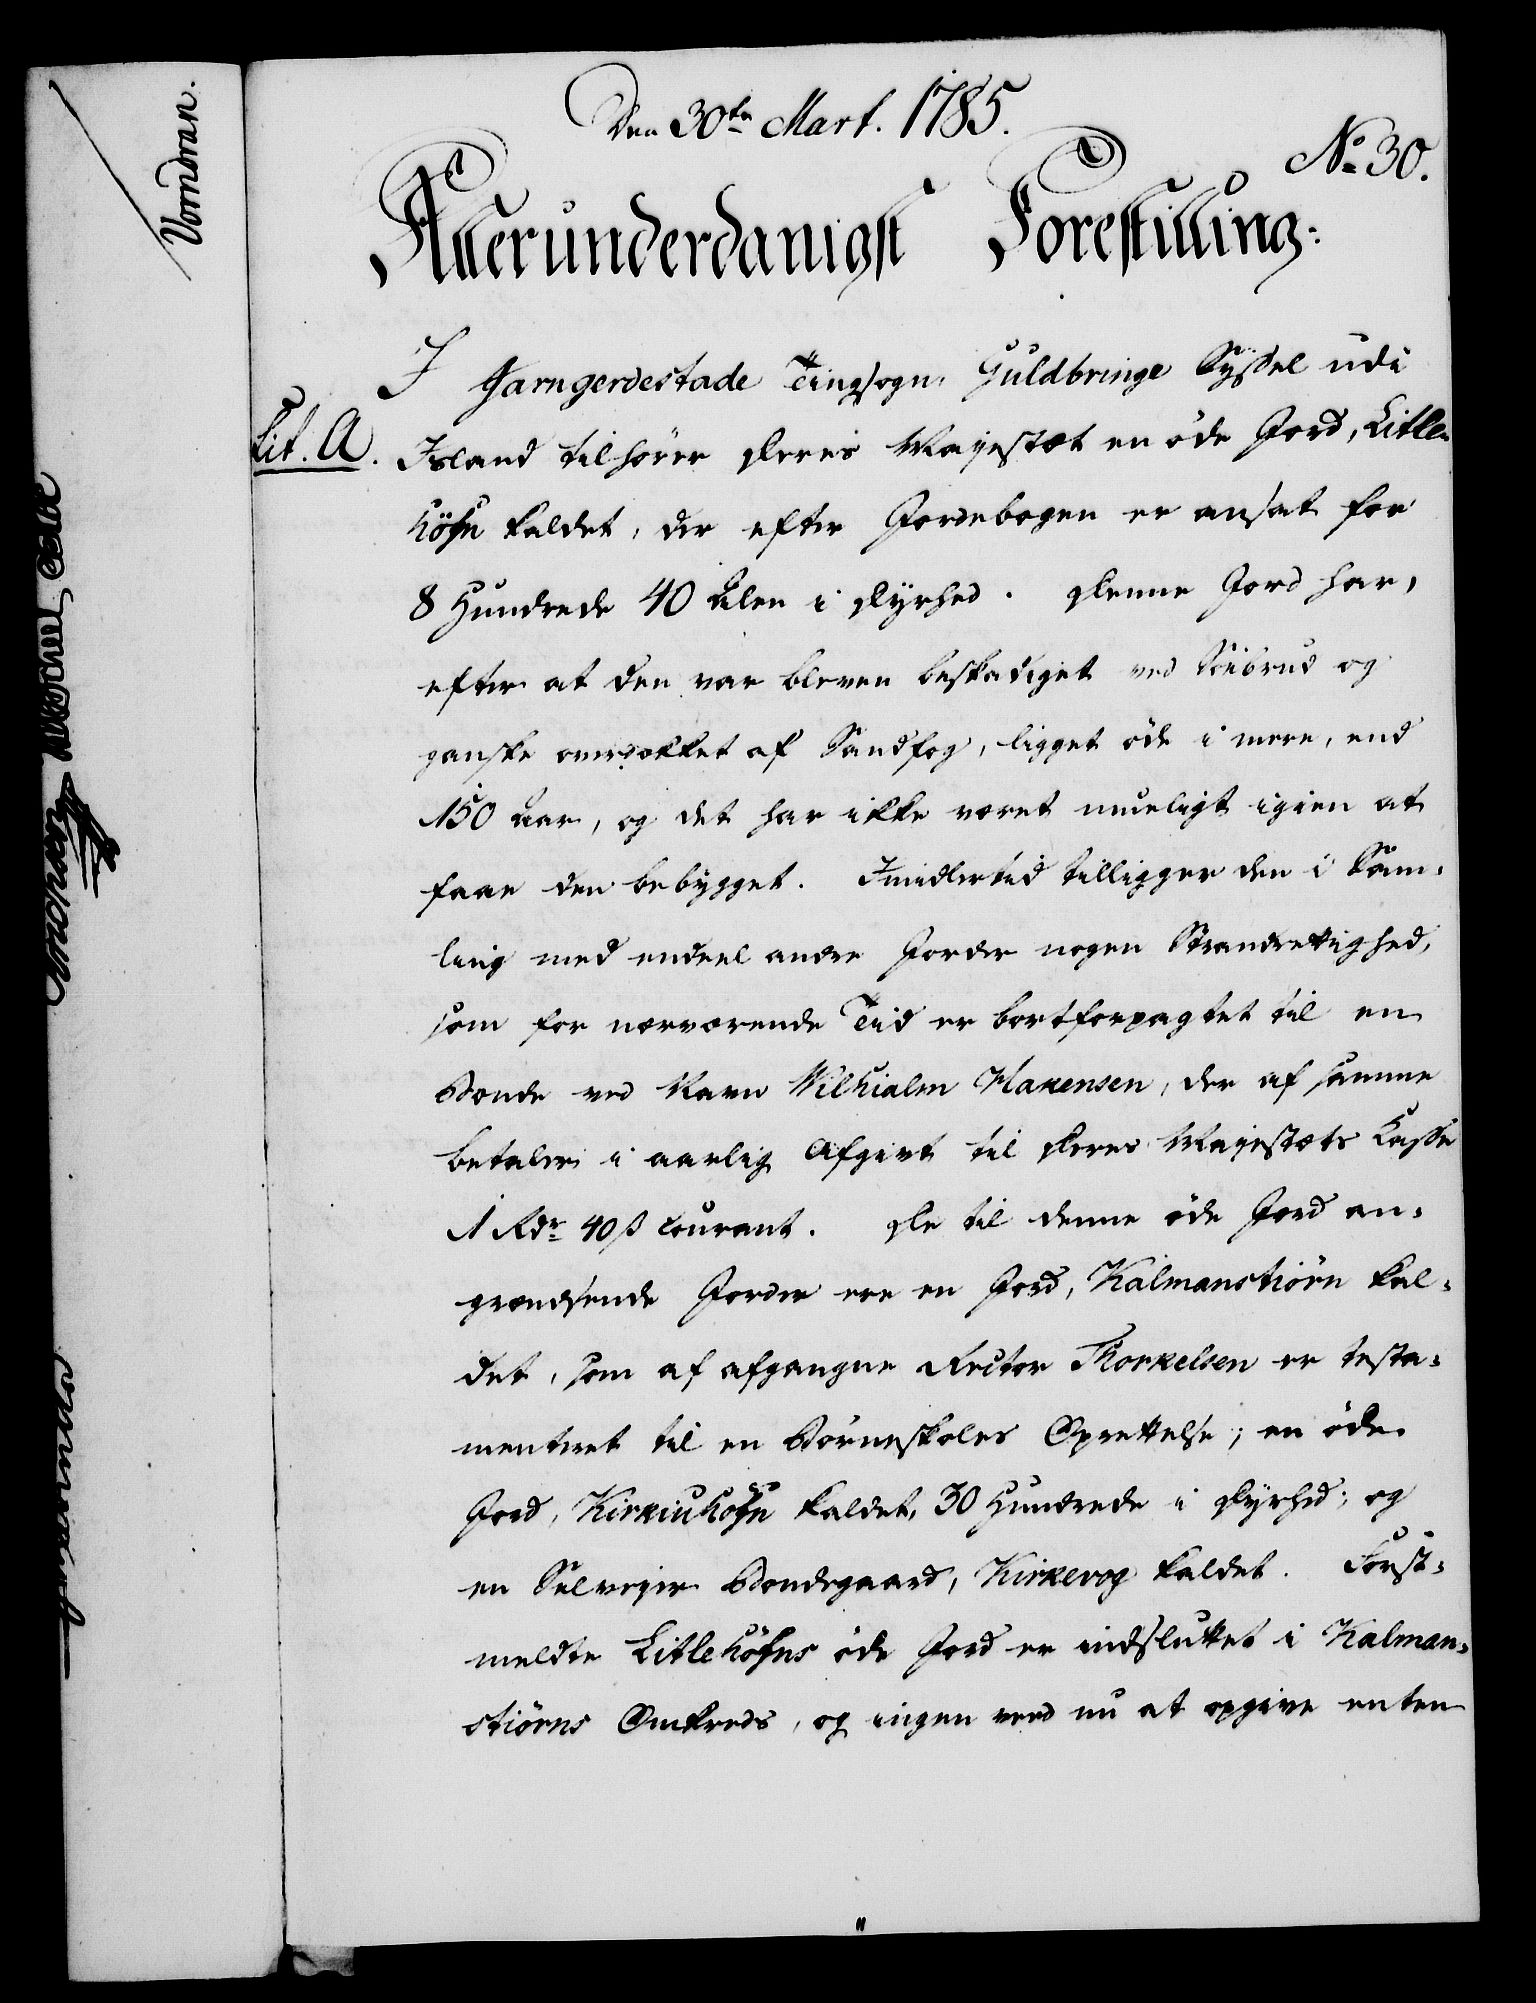 Den 30te Mart. 1785.
No 30.
Allerunderdanigst Forestilling:
I Jarngerdestade Tingsogn, Guldbringe Syssel udi
Lit. A.
Island tilhörer Deres Majestæt en öde Jord, Litle-
höfn kaldet, der efter Jordebogen er ansat for
8 Hundrede 40 Alen i Dyrhed. Denne Jord har,
efter at den var bleven beskadiget ved Söebrud og
ganske overdækket af Sandfog, ligget öde i mere, end
150 Aar, og det har ikke været mueligt igien at
faae den bebygget. Imidlertid tilligger den i Sam-
ling med endeel andre Jorder nogen Strandrettighed,
som for nærværende Tiid er bortforpagtet til en
Bonde ved Navn Vilhialm Hakensen, der af samme
betaler i aarlig Afgivt til Deres Majestæts Casse
1 Rdr 40 ß Courant. De til denne öde Jord an-
grændsende Jorder ere en Jord, Kalmanstiörn kal-
det, som af afgangne Rector Thorkelsen er testa-
menteret til en Börneskoles Oprettelse; en öde
Jord, Kirkiuhöfn kaldet, 30 Hundrede i Dyrhed; og
en Selveyer Bondegaard, Kirkevog kaldet. Först-
meldte Litlehöfns öde Jord er indsluttet i Kalman-
stiörns Omkreds, og ingen veed nu at opgive enten
Vorndran.